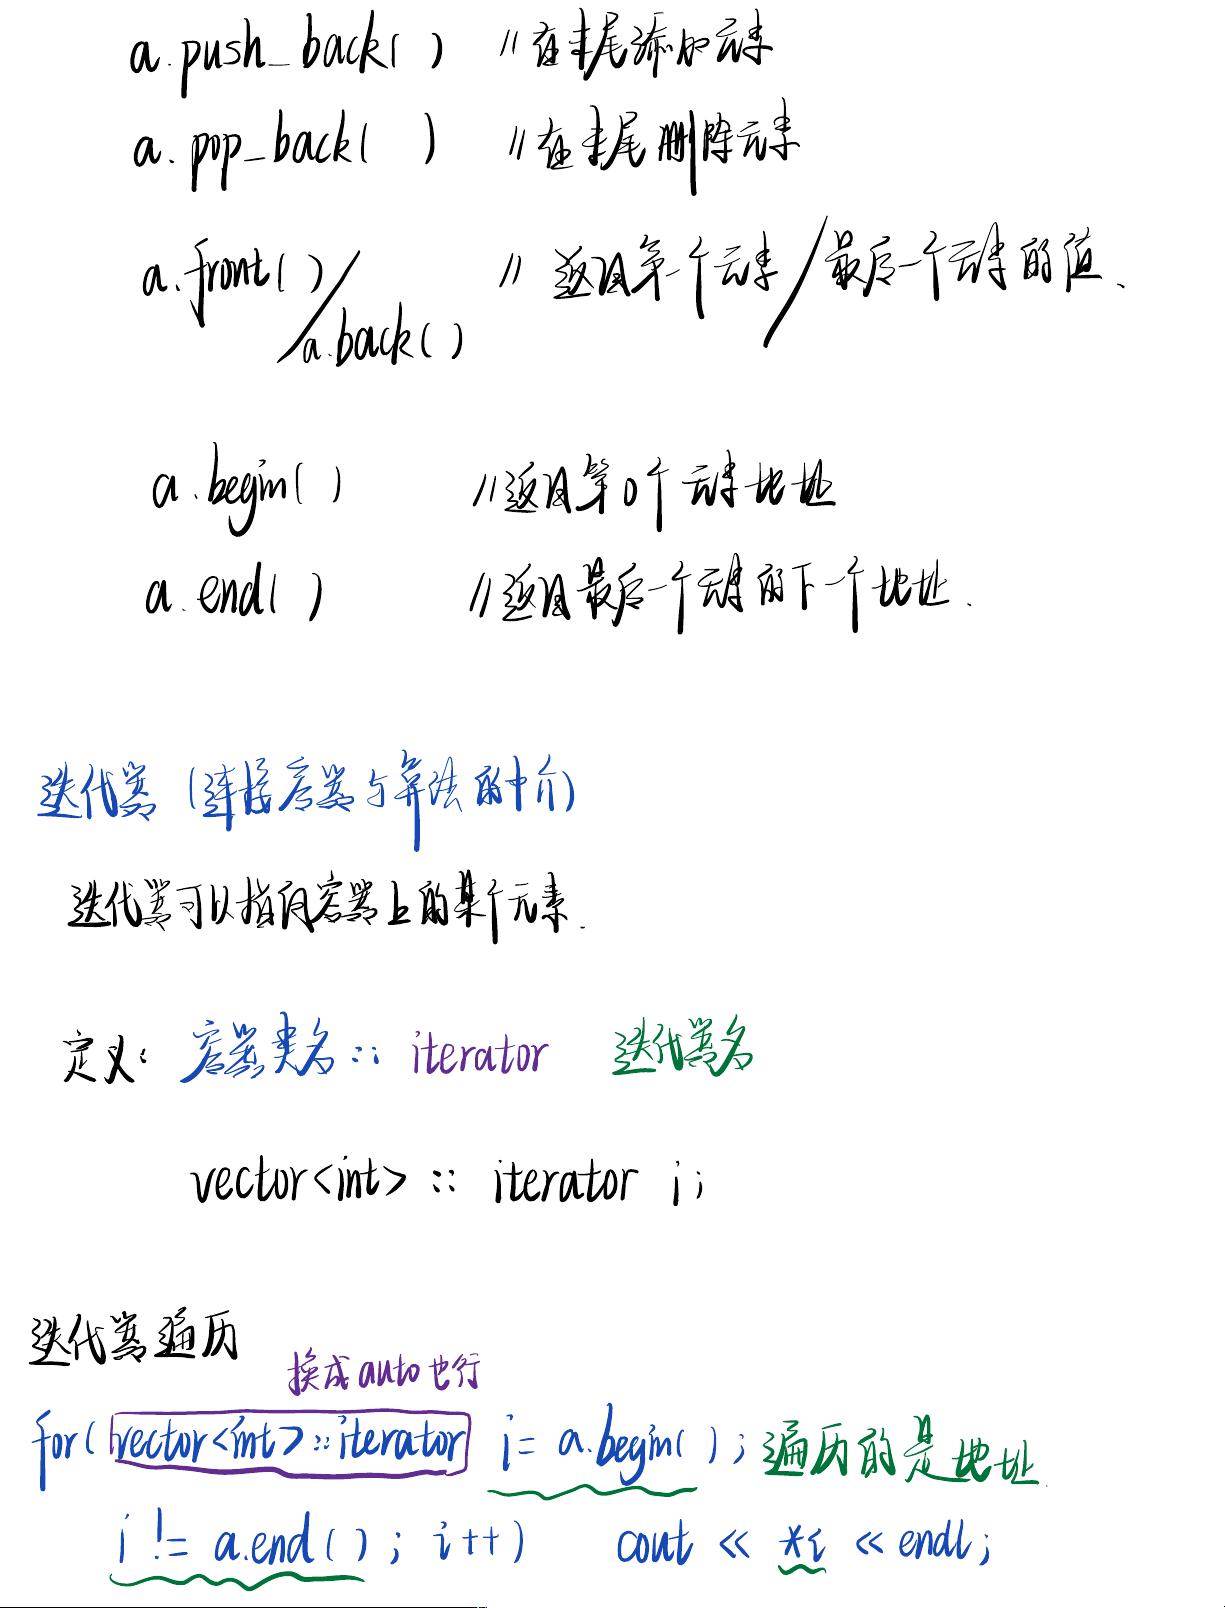 a.push_back( ) //在末尾添加元素
a.pop_back( ) //在末尾删除元素
a.front( )/ // 返回第一个元素/最后一个元素的值、
a.back( )
a.begin( ) //返回第0个元素地址
a.end( ) //返回最后一个元素的下一个地址.
迭代器 (连接容器与算法的中介)
迭代器可以指向容器上的某个元素.
定义: 容器类名 :: iterator 迭代器名
vector<int> :: iterator i;
迭代器遍历
换成auto也行
for( vector<int>::iterator i= a.begin( ); 遍历的是地址
i != a.end( ); i++) cout << *i << endl;